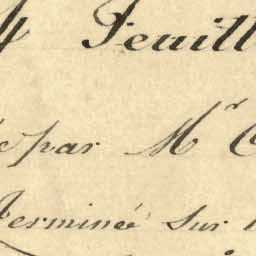 4 Feuill
par Mr
Terminée sur